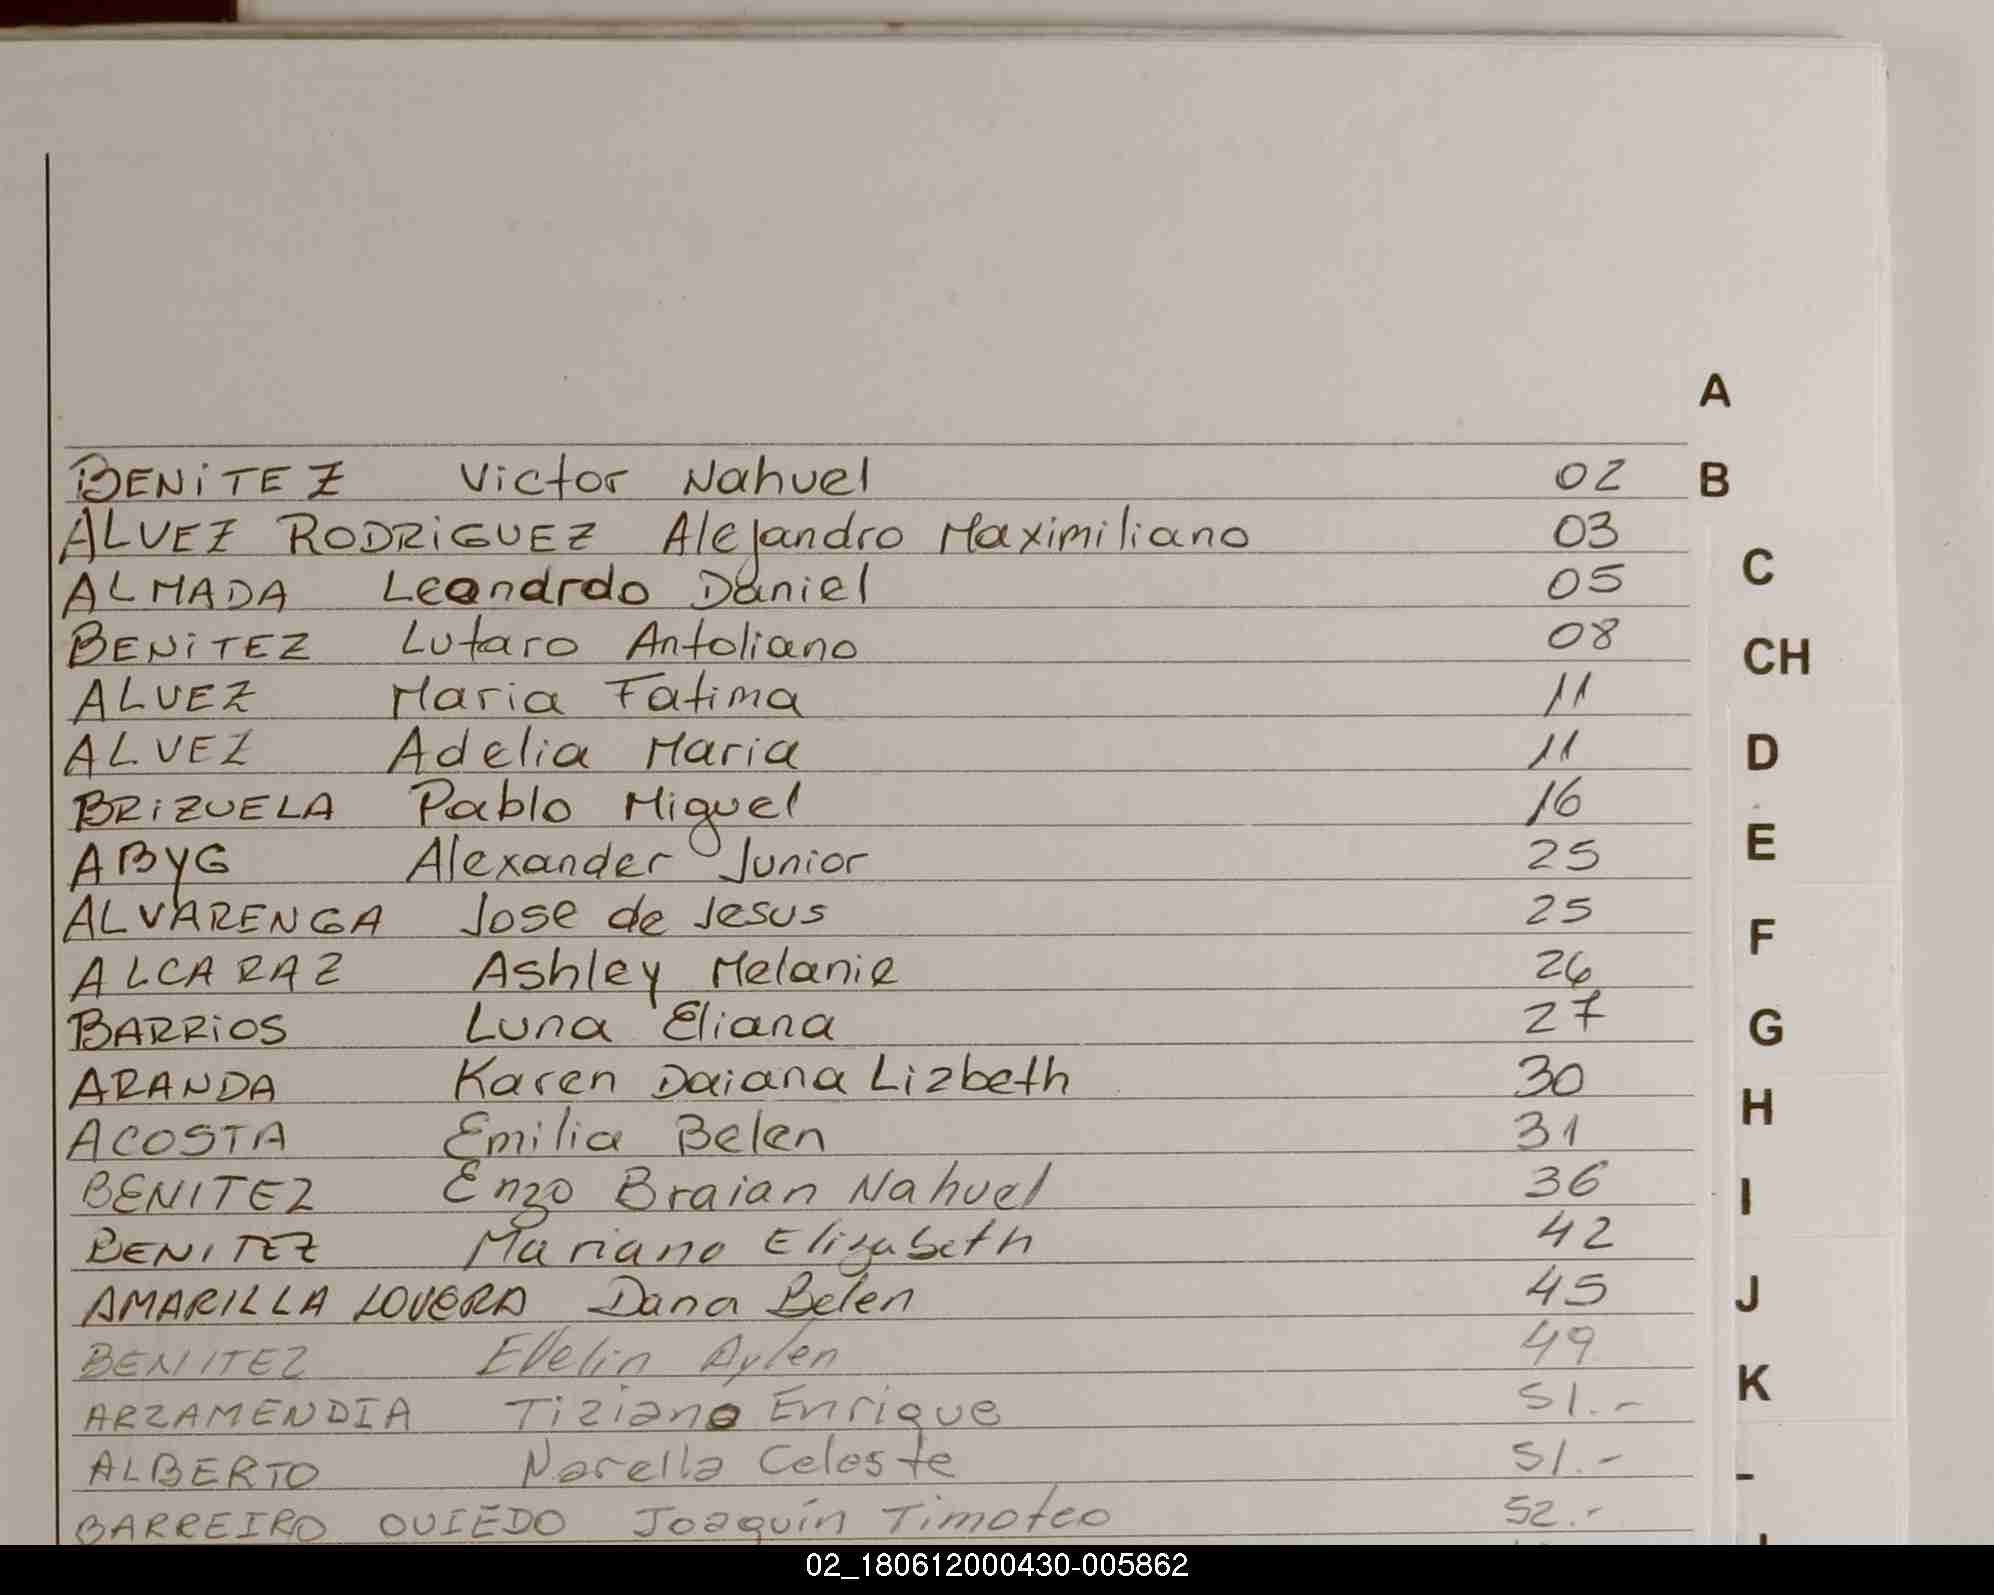 A
BENITEZ Victor Nahuel 02
B
ALVEZ RODRIGUEZ Alejandro Maximiliano 03
C
ALMADA Leandrdo Daniel 05
BENITEZ Lutaro Antoliano 08
CH
ALVEZ Maria Fatima 11
ALVEZ Adelia Maria 11
D
BRIZUELA Pablo Miguel 16
E
ABYG Alexander Junior 25
ALVARENGA Jose de Jesus 25
F
ALCARAZ Ashley Melanie 26
BARRIOS Luna Eliana 27
G
ARANDA Karen Daiana Lizbeth 30
H
ACOSTA Emilia Belen 31
BENITEZ Enzo Braian Nahuel 36
I
BENITEZ Mariano Elizabeth 42
AMARILLA LOVERA Dana Belen 45
J
BENITEZ Evelin Aylen 49
K
ARZAMENDIA Tiziano Enrique 51.-
ALBERTO Narella Celeste 51.-
BARREIRO OVIEDO Joaquín Timoteo 52.-
02_180612000430-005862